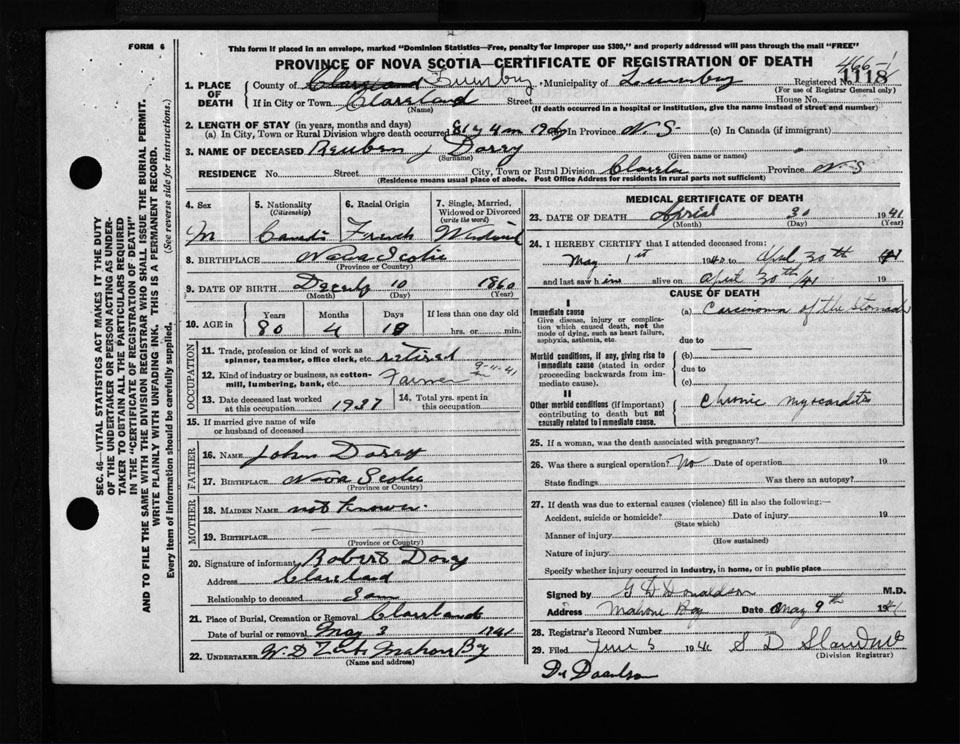 FORM 6
This form if placed in an envelope, marked "Dominion Statistics—Free, penalty for improper use $300," and properly addressed will pass through the mail "FREE"
PROVINCE OF NOVA SCOTIA—CERTIFICATE OF REGISTRATION OF DEATH
466-1
1. PLACE OF DEATH County of Municipality of Registered No. 1118
(For use of Registrar General only)
If in City or Town Street House No.
(Name) (If death occurred in a hospital or institution, give the name instead of street and number)
2. LENGTH OF STAY (in years, months and days)
(a) In City, Town or Rural Division where death occurred 81 y 4 m 19 dy In Province N. S. (c) In Canada (if immigrant)
3. NAME OF DECEASED Reuben J Dorey
(Surname) (Given name or names)
RESIDENCE No. Street City, Town or Rural Division Province N S
(Residence means usual place of abode. Post Office Address for residents in rural parts not sufficient)
4. Sex M
5. Nationality (Citizenship)
6. Racial Origin French
7. Single, Married, Widowed or Divorced (write the word)
8. BIRTHPLACE Nova Scotia
(Province or Country)
9. DATE OF BIRTH 10 1860
(Month) (Day) (Year)
10. AGE in Years 80 Months 4 Days 19 If less than one day old hrs. or min.
OCCUPATION
11. Trade, profession or kind of work as spinner, teamster, office clerk, etc. retired
12. Kind of industry or business, as cotton-mill, lumbering, bank, etc. Farmer 9-11-41
13. Date deceased last worked at this occupation 1937
14. Total yrs. spent in this occupation
15. If married give name of wife or husband of deceased
FATHER
16. NAME John Dorey
17. BIRTHPLACE Nova Scotia
(Province or Country)
MOTHER
18. MAIDEN NAME not known
19. BIRTHPLACE
(Province or Country)
20. Signature of informant Robert Dory
Address
Relationship to deceased Son
21. Place of Burial, Cremation or Removal
Date of burial or removal May 3 1941
22. UNDERTAKER W. D. Mahone Bay
(Name and address)
MEDICAL CERTIFICATE OF DEATH
23. DATE OF DEATH April 30 1941
(Month) (Day) (Year)
24. I HEREBY CERTIFY that I attended deceased from:
May 1st 1940 to April 30th 41
and last saw him alive on April 30th/41 19
CAUSE OF DEATH
I
Immediate cause
Give disease, injury or complication which caused death, not the mode of dying, such as heart failure, asphyxia, asthenia, etc.
(a) Carcinoma of the Stomach
due to
Morbid conditions, if any, giving rise to immediate cause (stated in order proceeding backwards from immediate cause).
(b)
due to
(c)
II
Other morbid conditions (if important) contributing to death but not causally related to immediate cause.
Chronic myocarditis
25. If a woman, was the death associated with pregnancy?
26. Was there a surgical operation? No Date of operation 19
State findings Was there an autopsy?
27. If death was due to external causes (violence) fill in also the following:—
Accident, suicide or homicide? Date of injury 19
(State which)
Manner of injury
(How sustained)
Nature of injury
Specify whether injury occurred in industry, in home, or in public place
Signed by G D Donaldson M.D.
Address Mahone Bay Date May 9th 1941
28. Registrar's Record Number
29. Filed June 5 1941 S D
(Division Registrar)
SEC. 46—VITAL STATISTICS ACT MAKES IT THE DUTY
OF THE UNDERTAKER OR PERSON ACTING AS UNDERTAKER TO OBTAIN ALL THE PARTICULARS REQUIRED
IN THE "CERTIFICATE OF REGISTRATION OF DEATH"
AND TO FILE THE SAME WITH THE DIVISION REGISTRAR WHO SHALL ISSUE THE BURIAL PERMIT.
WRITE PLAINLY WITH UNFADING INK. THIS IS A PERMANENT RECORD.
Every item of information should be carefully supplied. (See reverse side for instructions.)